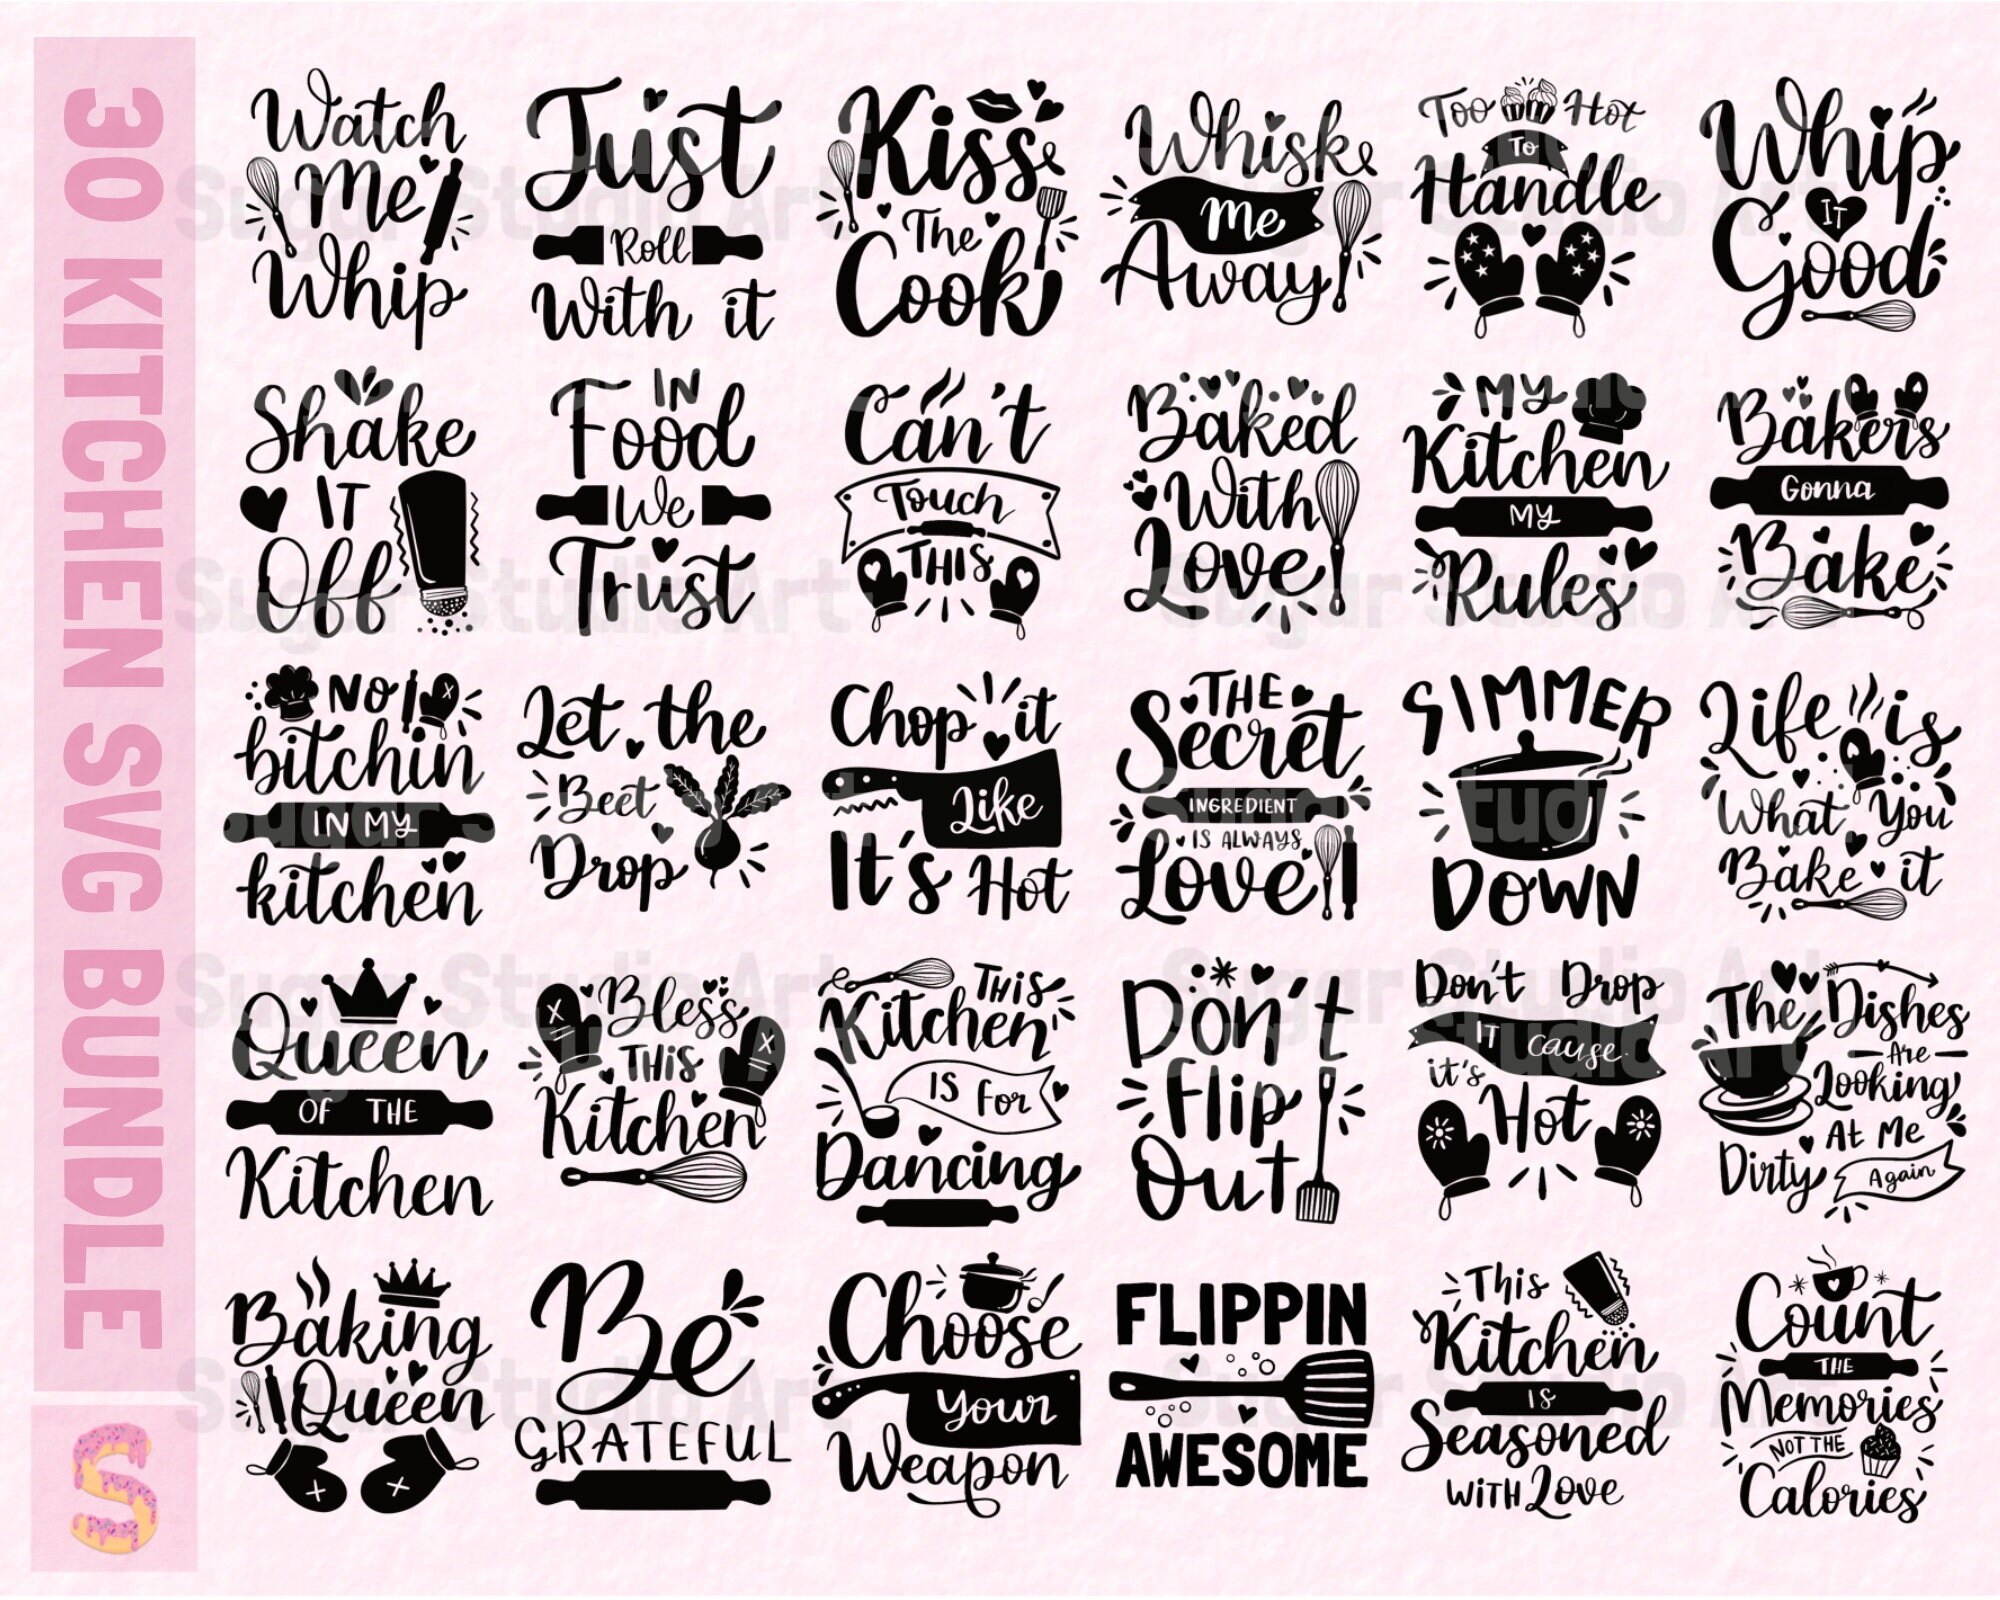 30 KITCHEN SVG BUNDLE
S
Watch
Me
Whip
Just
Roll
With it
Kiss
The
Cook
Whisk
Me
Away
Too Hot
To
Handle
Whip
IT
Good
Shake
IT
Off
IN
Food
We
Trust
Can't
Touch
THIS
Baked
With
Love
MY
Kitchen
MY
Rules
Bakers
Gonna
Bake
NO
bitchin
IN MY
kitchen
Let the
Beet
Drop
Chop it
Like
It's Hot
THE
Secret
INGREDIENT
IS ALWAYS
Love
SIMMER
DOWN
Life is
What You
Bake it
Queen
OF THE
Kitchen
Bless
THIS
Kitchen
THIS
Kitchen
IS For
Dancing
Don't
Flip
Out
Don't Drop
IT cause
it's
Hot
The Dishes
Are
Looking
At Me
Dirty
Again
Baking
Queen
Be
GRATEFUL
Choose
Your
Weapon
FLIPPIN
AWESOME
This
Kitchen
IS
Seasoned
WITH Love
Count
THE
Memories
NOT THE
Calories
Sugar Studio Art
Sugar Studio Art
Sugar Studio Art
Sugar Studio Art
Sugar Studio Art
Sugar Studio Art
Sugar Studio Art
Sugar Studio Art
Sugar Studio Art
Sugar Studio Art